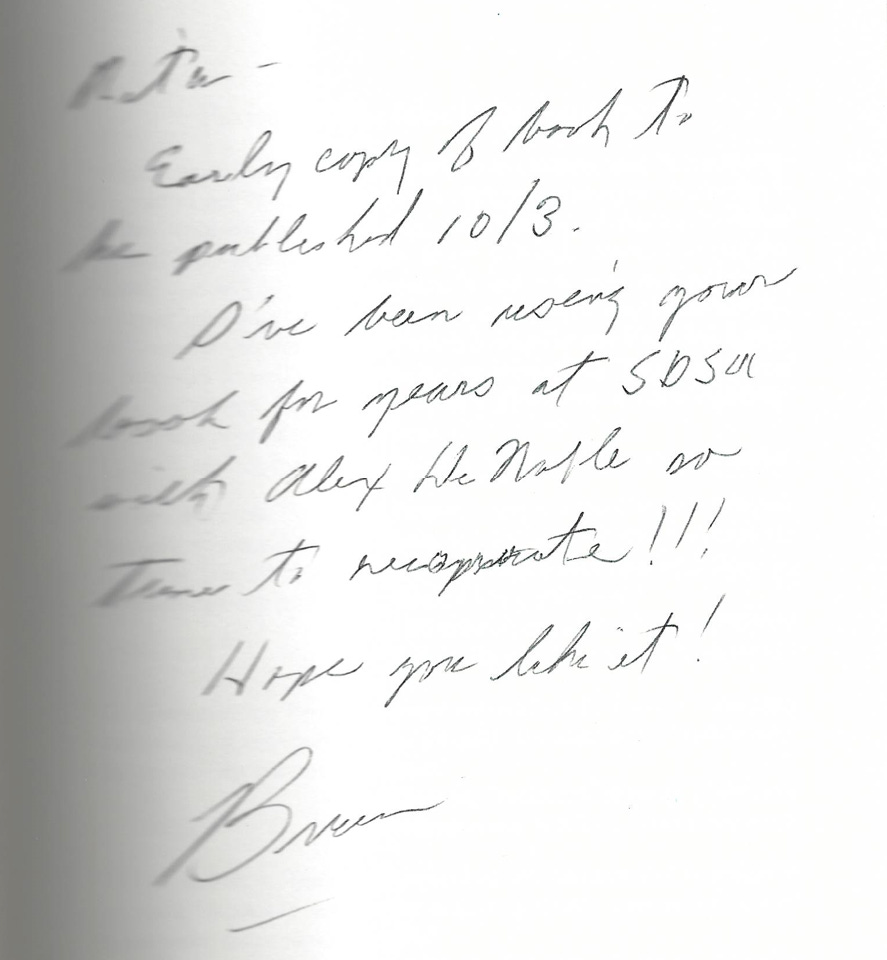 Early copy of book to
be published 10/3.
I've been using your
book for years at SDSU
with Alex DeNoble so
time to reciprocate!!!
Hope you like it!